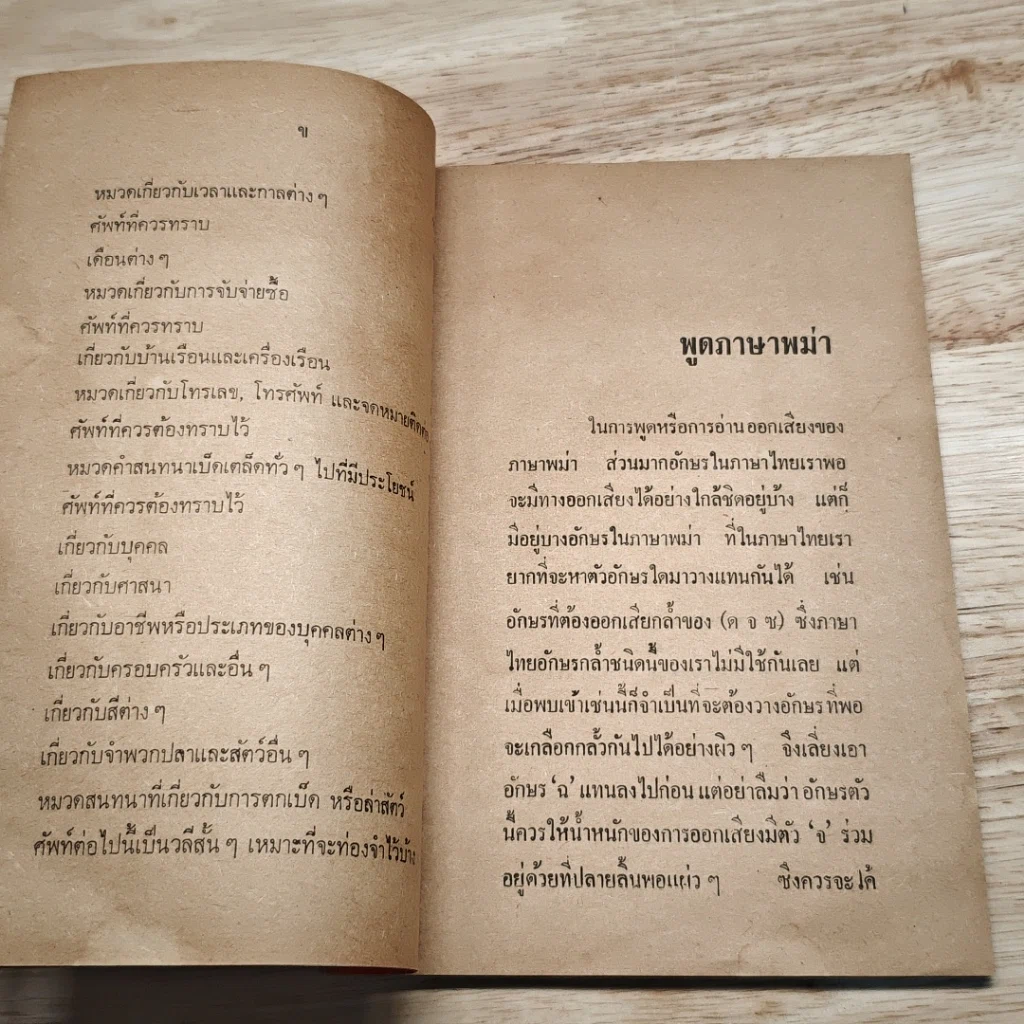 ข
หมวดเกี่ยวกับเวลาและกาลต่าง ๆ
ศัพท์ที่ควรทราบ
เดือนต่าง ๆ
หมวดเกี่ยวกับการจับจ่ายซื้อ
ศัพท์ที่ควรทราบ
เกี่ยวกับบ้านเรือนและเครื่องเรือน
หมวดเกี่ยวกับโทรเลข, โทรศัพท์ และจดหมายติดต่อ
ศัพท์ที่ควรต้องทราบไว้
หมวดคำสนทนาเบ็ดเตล็ดทั่ว ๆ ไปที่มีประโยชน์
ศัพท์ที่ควรต้องทราบไว้
เกี่ยวกับบุคคล
เกี่ยวกับศาสนา
เกี่ยวกับอาชีพหรือประเภทของบุคคลต่าง ๆ
เกี่ยวกับครอบครัวและอื่น ๆ
เกี่ยวกับสีต่าง ๆ
เกี่ยวกับจำพวกปลาและสัตว์อื่น ๆ
หมวดสนทนาที่เกี่ยวกับการตกเบ็ด หรือล่าสัตว์
ศัพท์ต่อไปนี้เป็นวลีสั้น ๆ เหมาะที่จะท่องจำไว้บ้าง
พูดภาษาพม่า
ในการพูดหรือการอ่านออกเสียงของ
ภาษาพม่า ส่วนมากอักษรในภาษาไทยเราพอ
จะมีทางออกเสียงได้อย่างใกล้ชิดอยู่บ้าง แต่ก็
มีอยู่บางอักษรในภาษาพม่า ที่ในภาษาไทยเรา
ยากที่จะหาตัวอักษรใดมาวางแทนกันได้ เช่น
อักษรที่ต้องออกเสียกล้ำของ (ด จ ซ) ซึ่งภาษา
ไทยอักษรกล้ำชนิดนี้ของเราไม่มีใช้กันเลย แต่
เมื่อพบเข้าเช่นนี้ก็จำเป็นที่จะต้องวางอักษรที่พอ
จะเกลือกกลั้วกันไปได้อย่างผิว ๆ จึงเลี่ยงเอา
อักษร ‘ฉ’ แทนลงไปก่อน แต่อย่าลืมว่า อักษรตัว
นี้ควรให้น้ำหนักของการออกเสียงมีตัว ‘จ’ ร่วม
อยู่ด้วยที่ปลายลิ้นพอแผ่ว ๆ ซึ่งควรจะได้